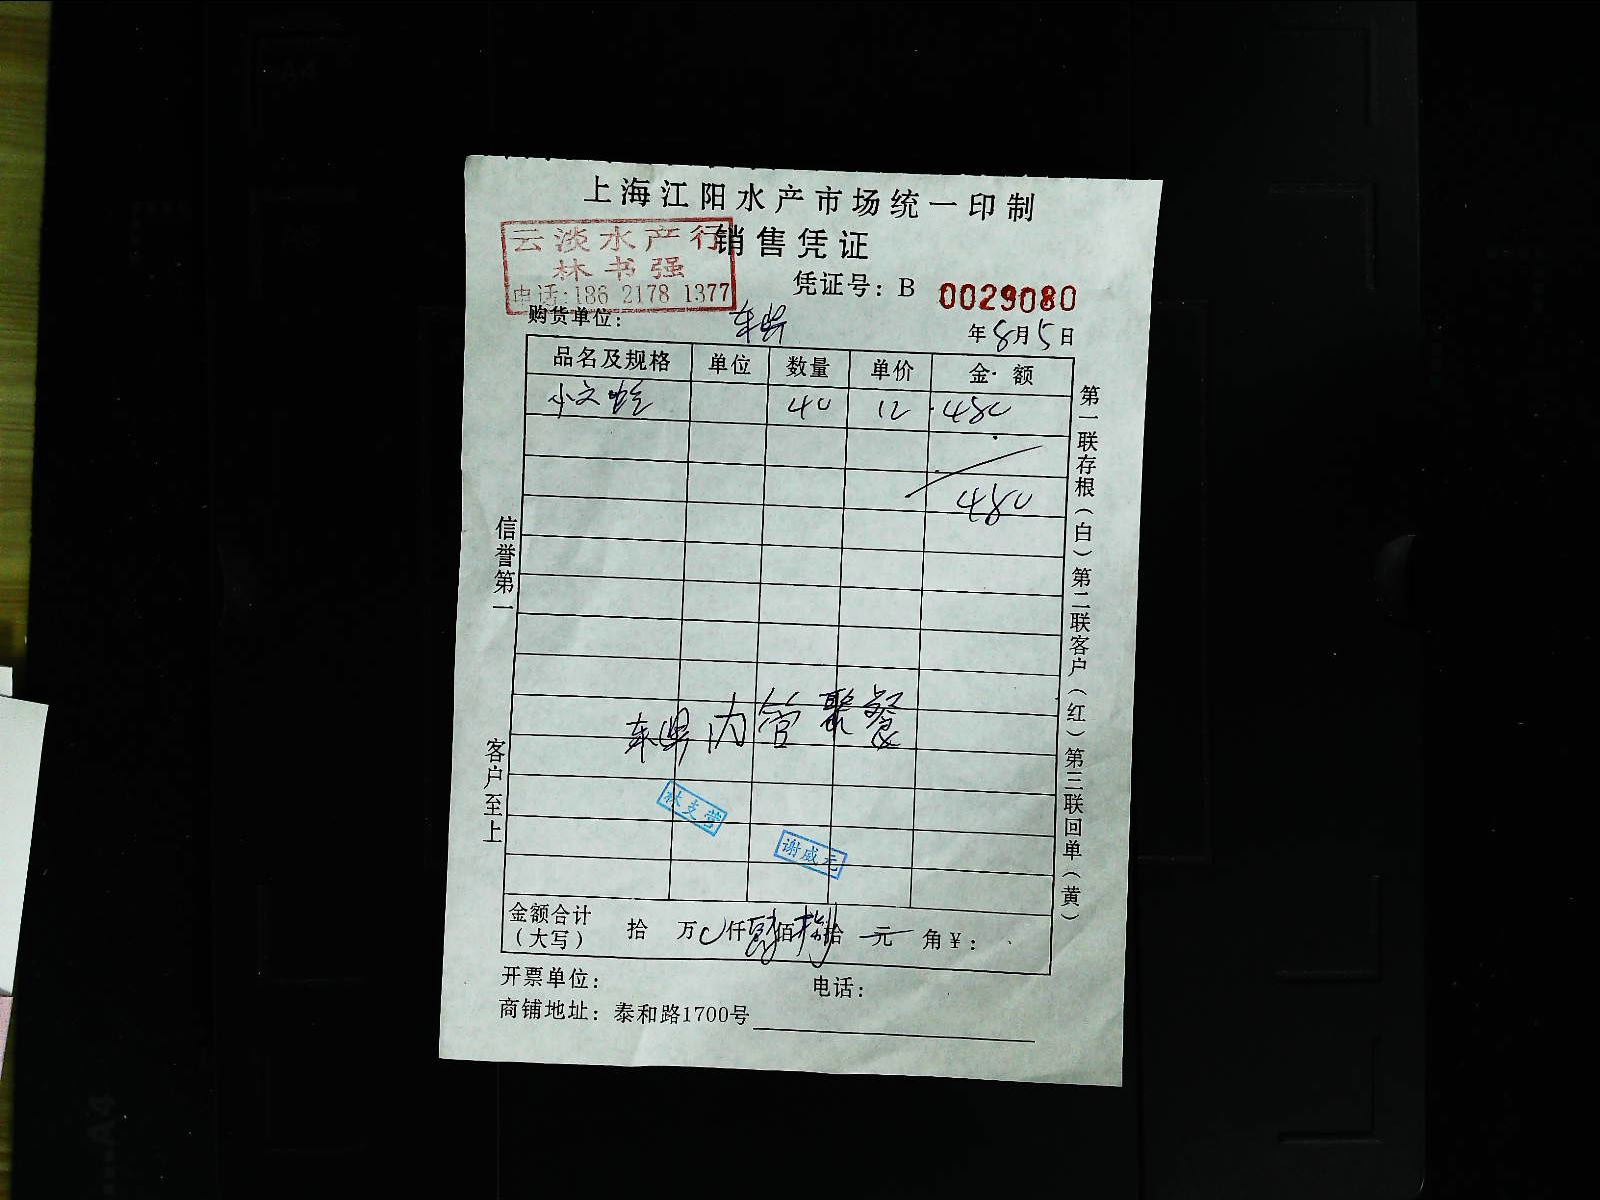 上海江阳水产市场统一印制
销售凭证
云淡水产行
林书强
电话:136 2178 1377
凭证号：B 0029080
购货单位：
年8月5日
品名及规格 单位 数量 单价 金额
小文蛤 40 12 480
480
内管聚餐
林支营
谢盛元
金额合计（大写） 拾 万 0 仟 肆 佰 捌 拾 元 角 ¥：
开票单位： 电话：
商铺地址：泰和路1700号
信誉第一
客户至上
第一联存根（白）第二联客户（红）第三联回单（黄）